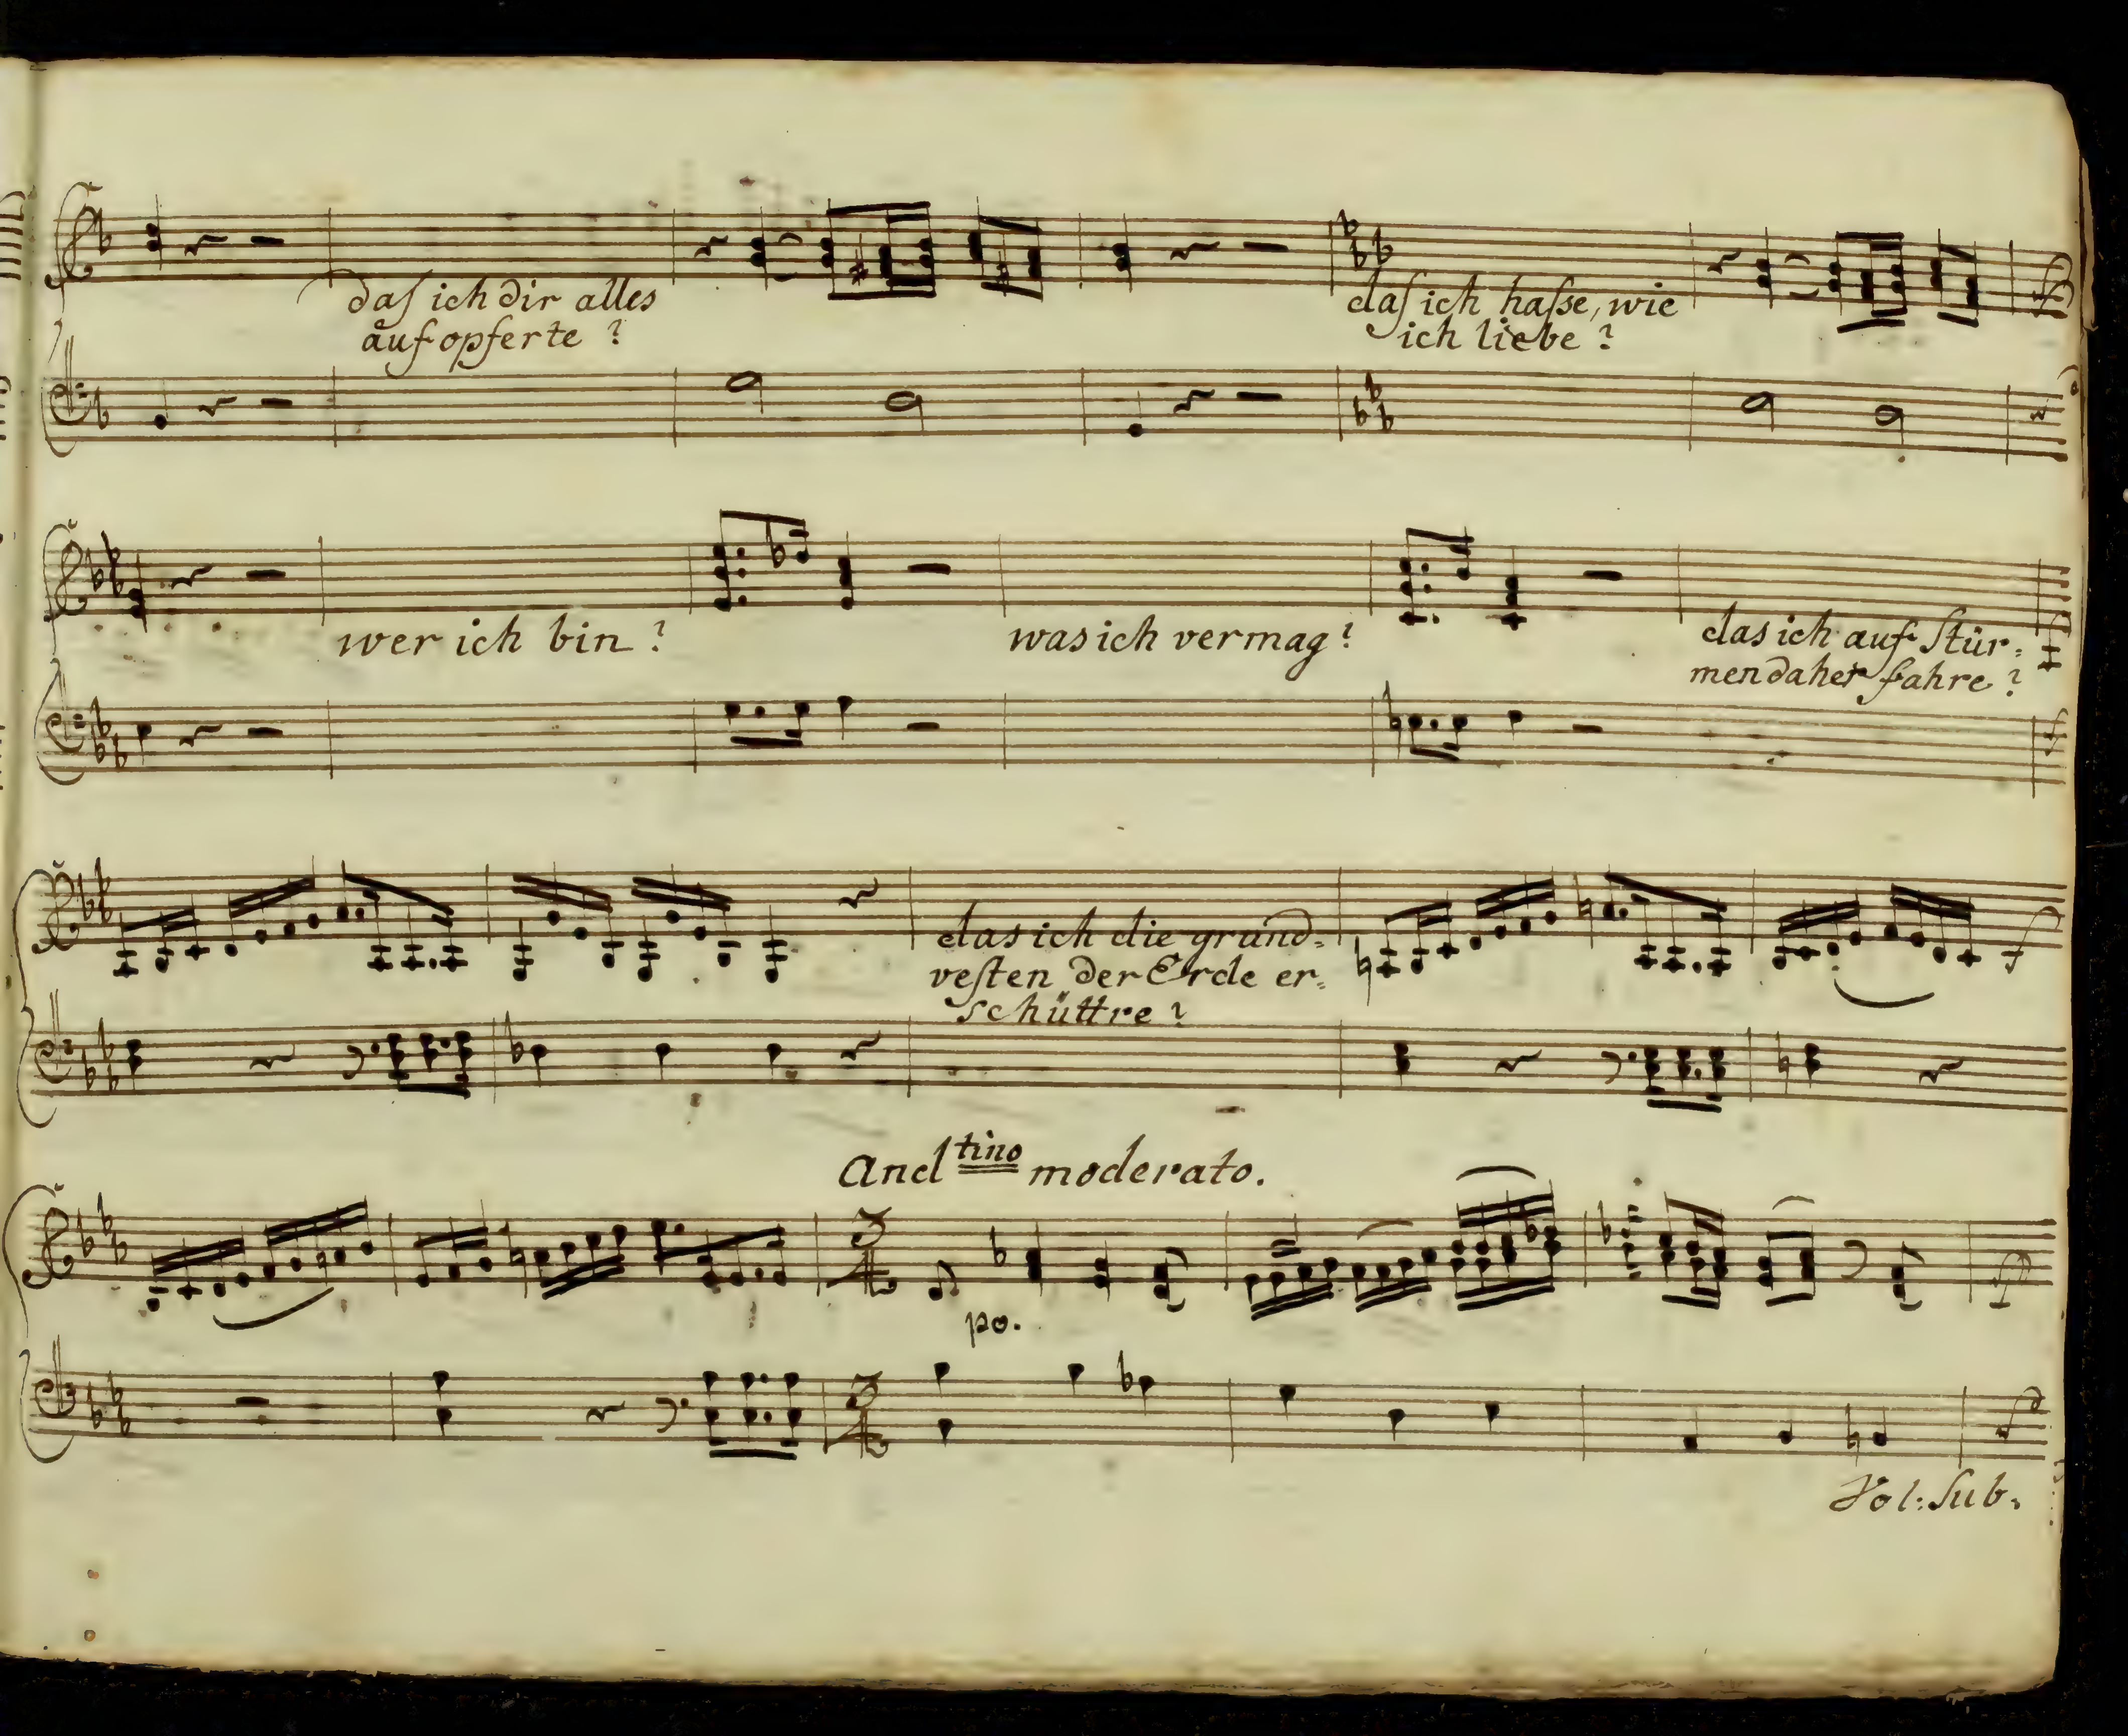 daſ ich dir alles
aufopferte?
daſ ich haſse, wie
ich liebe?
wer ich bin?
was ich vermag?
das ich auf Stür=
men daher fahre?
das ich die grund=
veſten der Erde er=
schüttre?
And tino moderato.
3
4
po.
3
4
Vol: Sub: